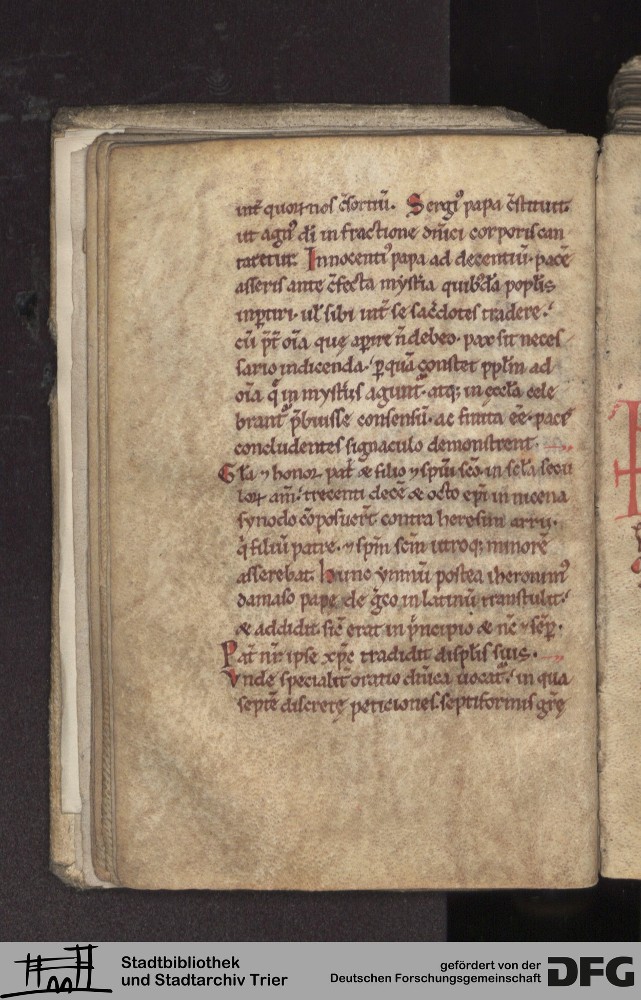 int̄ quoꝝ nos c̄sortiū. Sergiꝰ papa c̄stituit.
ut agnꝰ dī in fractione dn̄ici corporis can
taretur. Innocentiꝰ papa ad decentiū. pacē
asseris ante c̄fecta myst̄ia quibꝰdā popl̄is
inꝑtiri. ul̄ sibi int̄ se sac̄dotes tradere.
cū p̄t oīa quę aperire n̄ debeo. pax sit neces
sario indicenda. ꝑ quā constet ppl̄m ad
oīa q̄ in myst̄iis agunt᷑. atq; in eccl̄a cele
brant᷑ p̄buisse consensū. ac finita eē. pacis
concludentes signaculo demonstrent.
Gl̄a ⁊ honor pat̄ & filio ⁊ sp̄ui sc̄o. in sc̄la secu
loꝝ am̄. trecenti decē & octo ep̄i in nicena
synodo c̄oposuer̄t contra heresim arrii.
q̄ filiū patre. ⁊ sp̄m sc̄m utroq; minorē
asserebat. hunc ymnū postea iheronimꝰ
damaso papę de ḡco in latinū transtulit.
& addidit. sic̄ erat in p̄ncipio & nc̄ ⁊ sēp̄.
Pat̄ nr̄ ipse xp̄c tradidit discipl̄is suis.
Vnde specialit̄ oratio dn̄ica uocat᷑. in qua
septē discretę peticiones. septiformis gr̄ę
Stadtbibliothek
und Stadtarchiv Trier
gefördert von der
Deutschen Forschungsgemeinschaft
DFG